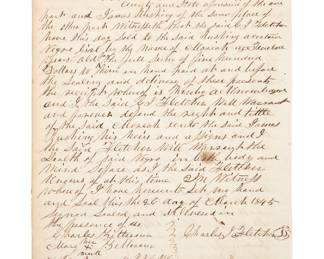 County and State aforesaid of the one
part and James Rushing of the same place of
the other part Witnesseth that the said C J Fletcher
have this day Sold to the said Rushing a certain
Negro Girl by the Name of Mariah
years old The full Sum of five hundred
Dollars to them in hand at and before
the Sealing and delivery of these presents
the receipt whereof is hereby acknowledged
and I the Said C J Fletcher Will Warrant
and forever defend the right and tittle
of the Said Mariah unto the said James
Rushing his heirs and asigns and I
the Said Fletcher Will Warrant the
health of said Negro in both body and
Mind before as I the Said Fletcher
at this time In Witness
whereof I have hereunto Set my hand
and Seal this 26 day of March 1845
Signed Sealed and
the presence of us
Charles Charles J Fletcher
Mary her
mark